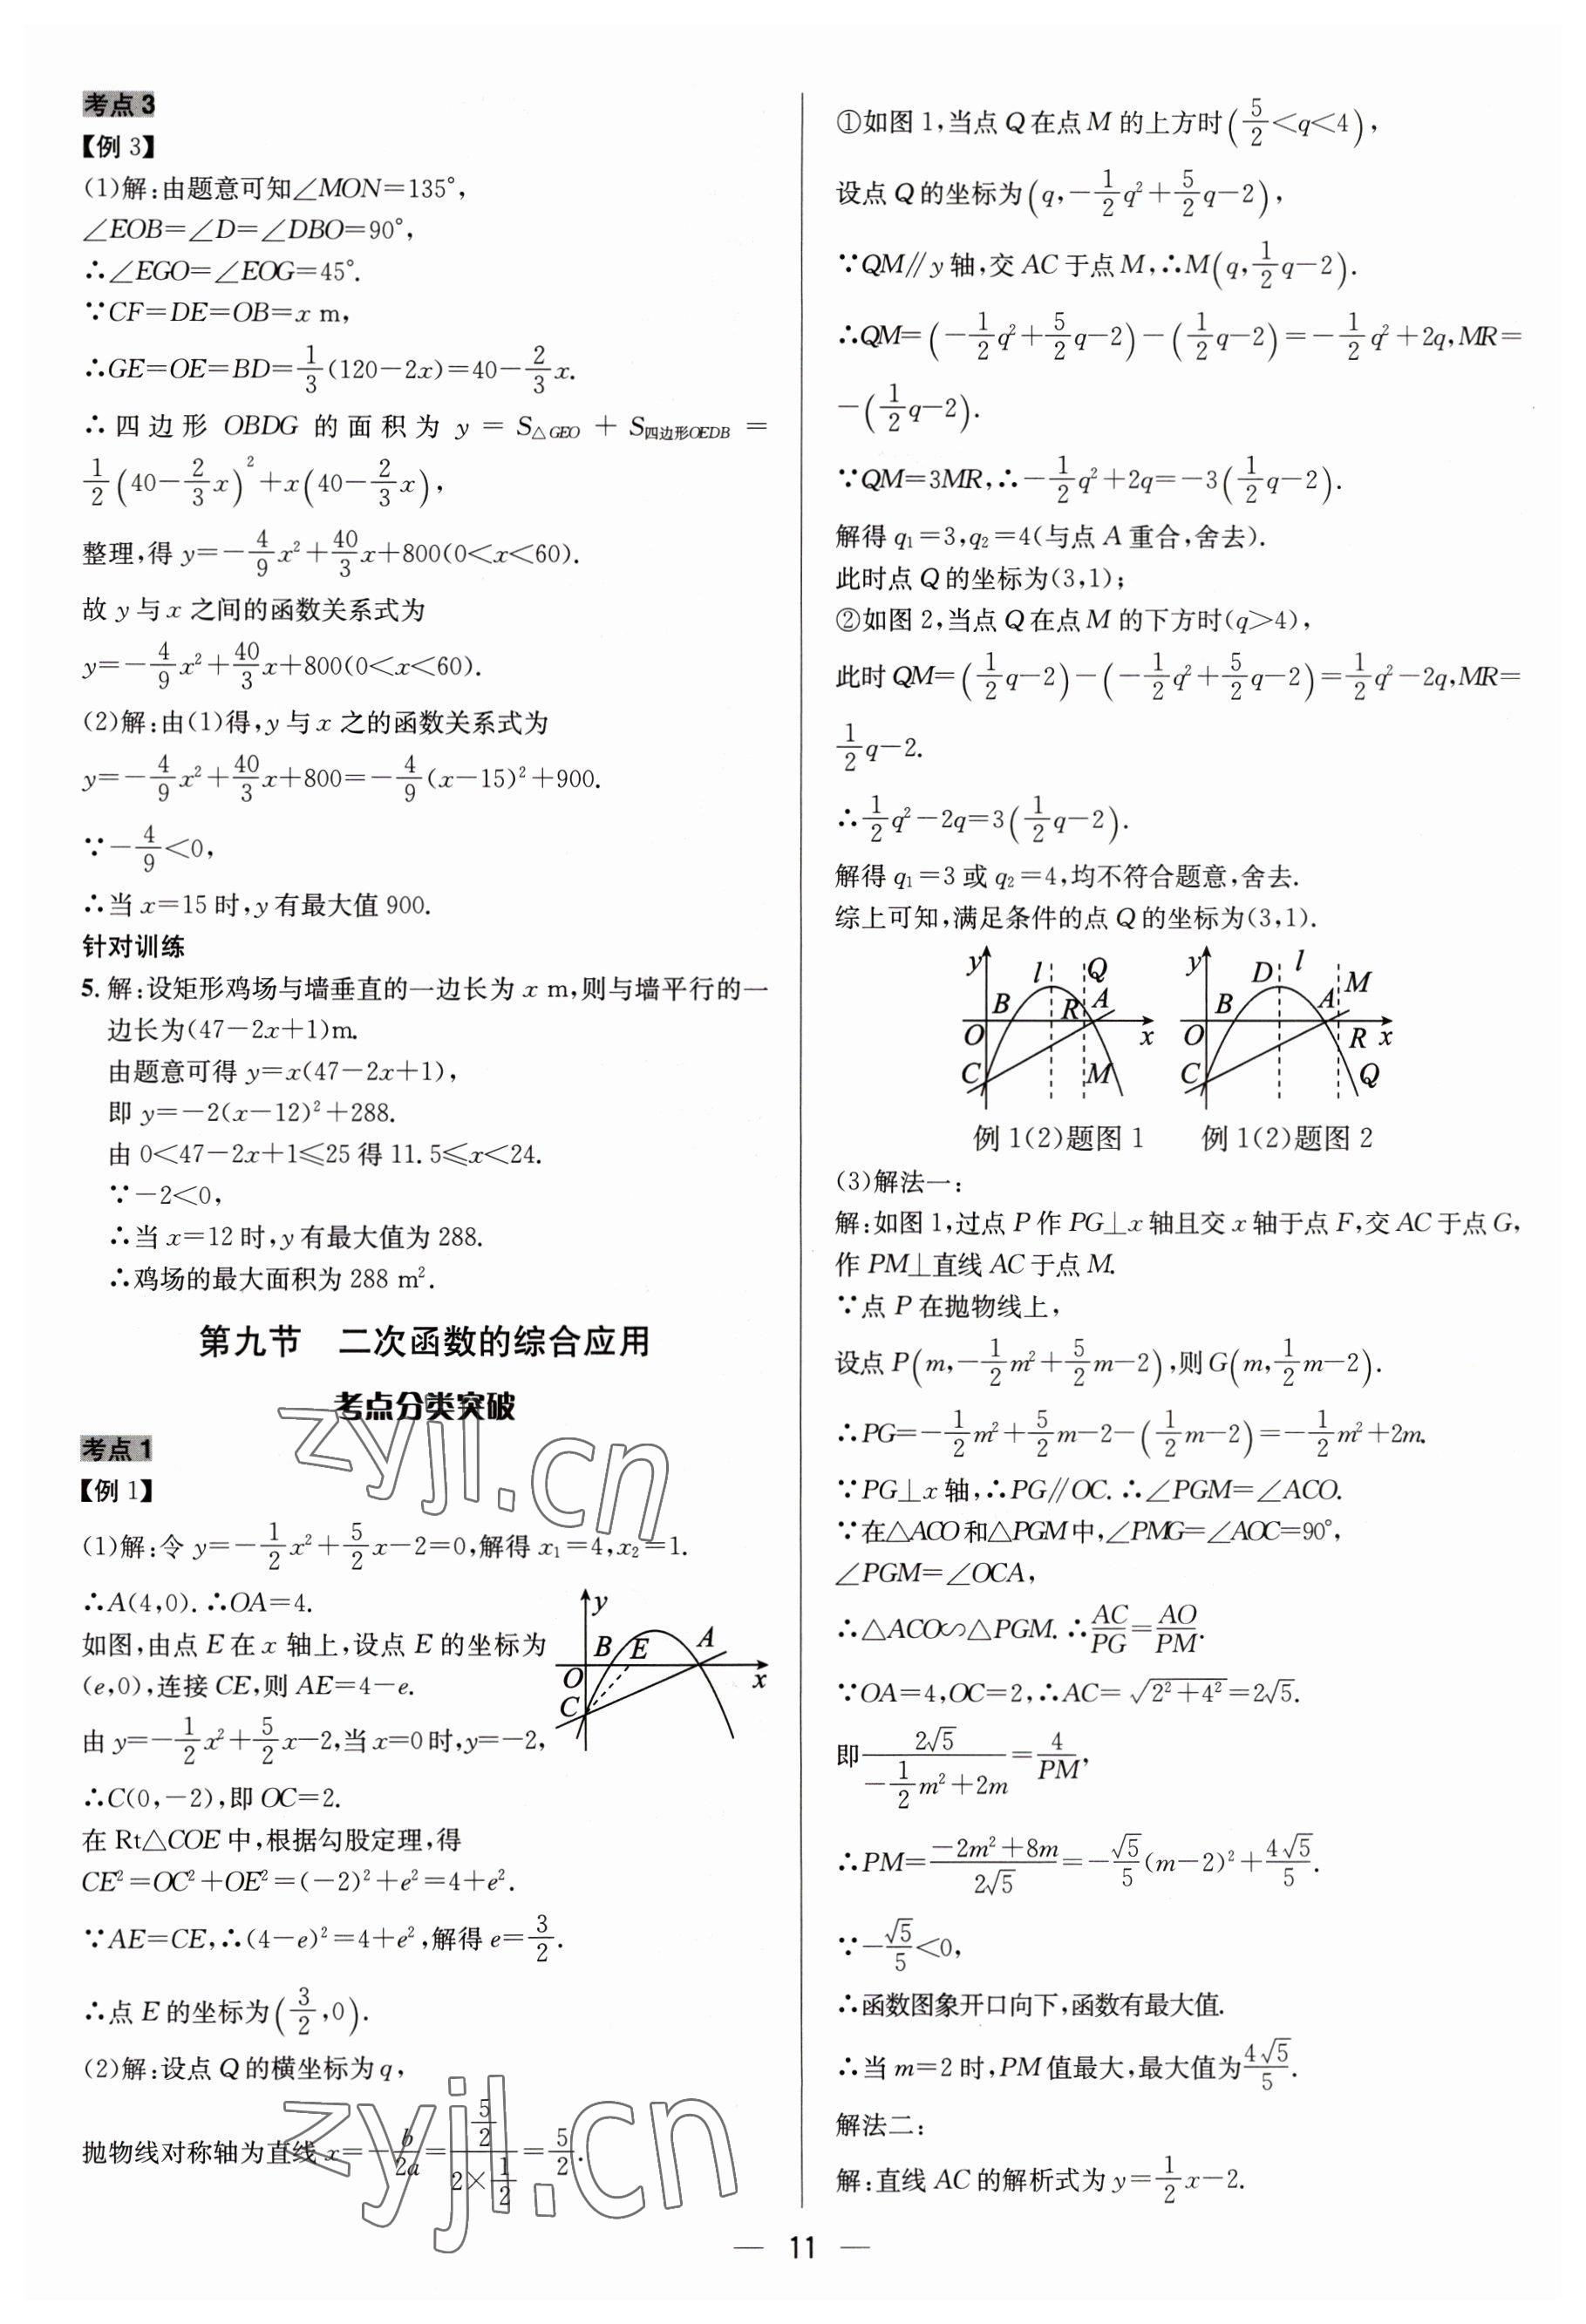 考点3
【例 3】
(1)解:由题意可知∠MON=135°,
∠EOB=∠D=∠DBO=90°,
∴∠EGO=∠EOG=45°.
∵CF=DE=OB=x m,
∴GE=OE=BD=1/3(120-2x)=40-2/3x.
∴四边形 OBDG 的面积为 y = S△GEO + S四边形OEDB =
1/2(40-2/3x)²+x(40-2/3x),
整理,得 y=-4/9x²+40/3x+800(0<x<60).
故 y 与 x 之间的函数关系式为
y=-4/9x²+40/3x+800(0<x<60).
(2)解:由(1)得,y 与 x 之的函数关系式为
y=-4/9x²+40/3x+800=-4/9(x-15)²+900.
∵-4/9<0,
∴当 x=15 时,y 有最大值 900.
针对训练
5. 解:设矩形鸡场与墙垂直的一边长为 x m,则与墙平行的一
边长为(47-2x+1)m.
由题意可得 y=x(47-2x+1),
即 y=-2(x-12)²+288.
由 0<47-2x+1≤25 得 11.5≤x<24.
∵-2<0,
∴当 x=12 时,y 有最大值为 288.
∴鸡场的最大面积为 288 m².
第九节　二次函数的综合应用
考点分类突破
考点1
【例 1】
(1)解:令 y=-1/2x²+5/2x-2=0,解得 x₁=4,x₂=1.
∴A(4,0).∴OA=4.
如图,由点 E 在 x 轴上,设点 E 的坐标为
(e,0),连接 CE,则 AE=4-e.
由 y=-1/2x²+5/2x-2,当 x=0 时,y=-2,
y
B E A
O x
C
∴C(0,-2),即 OC=2.
在 Rt△COE 中,根据勾股定理,得
CE²=OC²+OE²=(-2)²+e²=4+e².
∵AE=CE,∴(4-e)²=4+e²,解得 e=3/2.
∴点 E 的坐标为(3/2,0).
(2)解:设点 Q 的横坐标为 q,
抛物线对称轴为直线 x=-b/2a=(5/2)/(2×1/2)=5/2.
①如图 1,当点 Q 在点 M 的上方时(5/2<q<4),
设点 Q 的坐标为(q,-1/2q²+5/2q-2),
∵QM∥y 轴,交 AC 于点 M,∴M(q,1/2q-2).
∴QM=(-1/2q²+5/2q-2)-(1/2q-2)=-1/2q²+2q,MR=
-(1/2q-2).
∵QM=3MR,∴-1/2q²+2q=-3(1/2q-2).
解得 q₁=3,q₂=4(与点 A 重合,舍去).
此时点 Q 的坐标为(3,1);
②如图 2,当点 Q 在点 M 的下方时(q>4),
此时 QM=(1/2q-2)-(-1/2q²+5/2q-2)=1/2q²-2q,MR=
1/2q-2.
∴1/2q²-2q=3(1/2q-2).
解得 q₁=3 或 q₂=4,均不符合题意,舍去.
综上可知,满足条件的点 Q 的坐标为(3,1).
y l Q
B R A
O x
C M
例 1(2)题图 1
y D l M
B A
O R x
C Q
例 1(2)题图 2
(3)解法一:
解:如图 1,过点 P 作 PG⊥x 轴且交 x 轴于点 F,交 AC 于点 G,
作 PM⊥直线 AC 于点 M.
∵点 P 在抛物线上,
设点 P(m,-1/2m²+5/2m-2),则 G(m,1/2m-2).
∴PG=-1/2m²+5/2m-2-(1/2m-2)=-1/2m²+2m.
∵PG⊥x 轴,∴PG∥OC.∴∠PGM=∠ACO.
∵在△ACO 和△PGM 中,∠PMG=∠AOC=90°,
∠PGM=∠OCA,
∴△ACO∽△PGM.∴AC/PG=AO/PM.
∵OA=4,OC=2,∴AC=√(2²+4²)=2√5.
即 2√5/(-1/2m²+2m)=4/PM,
∴PM=(-2m²+8m)/2√5=-√5/5(m-2)²+4√5/5.
∵-√5/5<0,
∴函数图象开口向下,函数有最大值.
∴当 m=2 时,PM 值最大,最大值为4√5/5.
解法二:
解:直线 AC 的解析式为 y=1/2x-2.
— 11 —
zyjl.cn
zyjl.cn